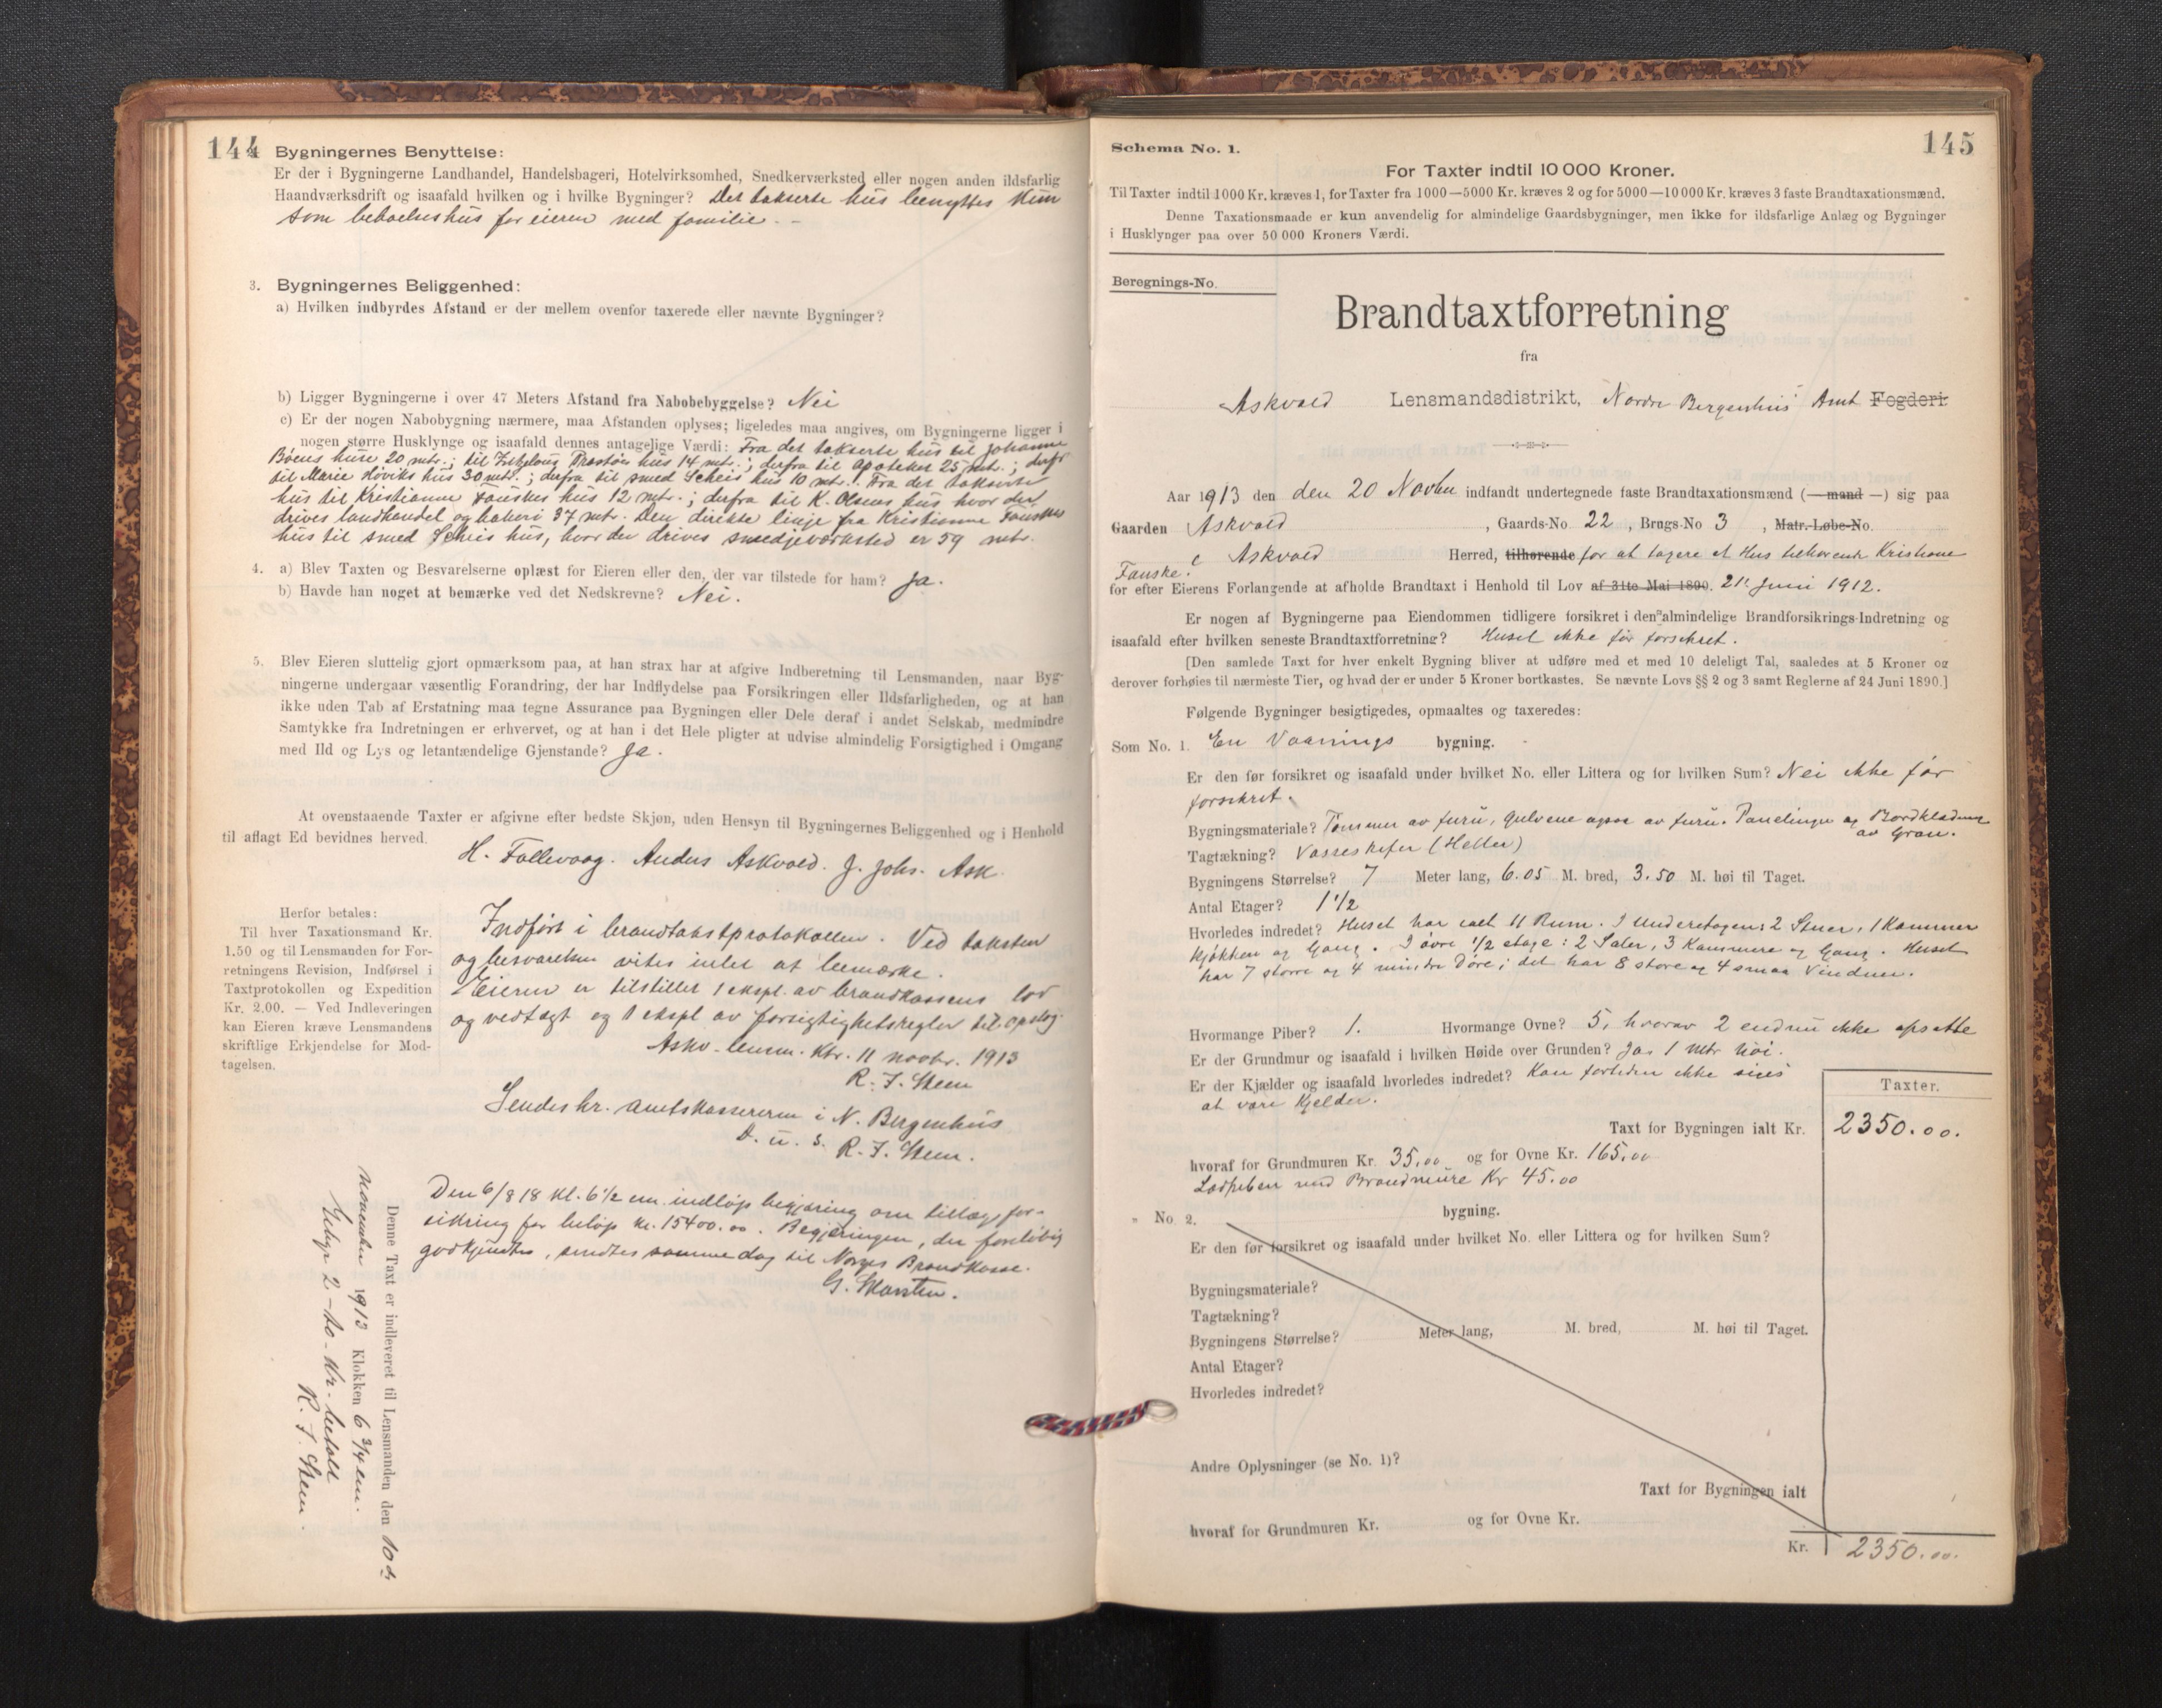 144
Bygningernes Benyttelse:
Er der i Bygningerne Landhandel, Handelsbageri, Hotelvirksomhed, Snedkerværksted eller nogen anden ildsfarlig
Haandværksdrift og isaafald hvilken og i hvilke Bygninger? Det takserte hus benyttes kun
som beboelseshus for eieren med familie. -
3. Bygningernes Beliggenhed:
a) Hvilken indbyrdes Afstand er der mellem ovenfor taxerede eller nævnte Bygninger?
b) Ligger Bygningerne i over 47 Meters Afstand fra Nabobebyggelse? Nei
c) Er der nogen Nabobygning nærmere, maa Afstanden oplyses; ligeledes maa angives, om Bygningerne ligger i
nogen større Husklynge og isaafald dennes antagelige Værdi: Fra det takserte hus til Johanne
Böens huse 20 mtr.; til hus 14 mtr.; derfra til apoteket 25 mtr.; derfr
til Marie Høviks hus 30 mtr.; derfra til smed Scheis hus 10 mtr.. Fra det takserte
hus til Kristianne Fauskes hus 12 mtr.; derfra til K. Olsens hus hvor der
drives landhandel og bakeri 37 mtr. Den direkte linje fra Kristianne Fauskes
hus til smed Scheis hus, hvor der drives smedjeværksted er 59 mtr.
4. a) Blev Taxten og Besvarelserne oplæst for Eieren eller den, der var tilstede for ham? Ja.
b) Havde han noget at bemærke ved det Nedskrevne? Nei.
5. Blev Eieren sluttelig gjort opmærksom paa, at han strax har at afgive Indberetning til Lensmanden, naar Byg-
ningerne undergaar væsentlig Forandring, der har Indflydelse paa Forsikringen eller Ildsfarligheden, og at han
ikke uden Tab af Erstatning maa tegne Assurance paa Bygningen eller Dele deraf i andet Selskab, medmindre
Samtykke fra Indretningen er erhvervet, og at han i det Hele pligter at udvise almindelig Forsigtighed i Omgang
med Ild og Lys og letantændelige Gjenstande? Ja.
At ovenstaaende Taxter er afgivne efter bedste Skjøn, uden Hensyn til Bygningernes Beliggenhed og i Henhold
til aflagt Ed bevidnes herved.
H. Follevaag. Anders Askvold. J. Johs. Ask.
Herfor betales:
Til hver Taxationsmand Kr.
1.50 og til Lensmanden for For-
retningens Revision, Indførsel i
Taxtprotokollen og Expedition
Kr. 2.00. — Ved Indleveringen
kan Eieren kræve Lensmandens
skriftlige Erkjendelse for Mod-
tagelsen.
Indført i brandtakstprotokollen. Ved taksten
og besvarelsen vites intet at bemærke.
Eieren er tilstillet 1 ekspl. av brandkassens lov
og vedtægt og 1 ekspl av forsigtighetsregler til opslag.
Askv. lensm. ktr. 11 novbr. 1913
R. J. Steen
Sendes hr. amtskassereren i N. Bergenhus
D. u. s. R. J. Steen.
Den 6/8 18 kl. 6 1/2 em. indløp begjæring om tillægsfor-
sikring for beløp kr. 15400.00. Begjæringen, der foreløbig
godkjendtes, sendtes samme dag til Norges Brandkasse.
Denne Taxt er indleveret til Lensmanden den 10de
november 1913 Klokken 6 3/4 em.
Gebyr 2 - to - kr. betalt
R. J. Steen.
145
Schema No. 1.
For Taxter indtil 10 000 Kroner.
Til Taxter indtil 1000 Kr. kræves 1, for Taxter fra 1000—5000 Kr. kræves 2 og for 5000—10 000 Kr. kræves 3 faste Brandtaxationsmænd.
Denne Taxationsmaade er kun anvendelig for almindelige Gaardsbygninger, men ikke for ildsfarlige Anlæg og Bygninger
i Husklynger paa over 50 000 Kroners Værdi.
Beregnings-No.
Brandtaxtforretning
fra
Askvold Lensmandsdistrikt, Nordre Bergenhus Amt Fogderi
Aar 1913 den den 20 Novbr indfandt undertegnede faste Brandtaxationsmænd (— mand —) sig paa
Gaarden Askvold , Gaards-No 22 , Brugs-No 3 , Matr.-Løbe-No.
i Askvold Herred, tilhørende for at taxere et Hus tilhørende Kristiane
Fauske.
for efter Eierens Forlangende at afholde Brandtaxt i Henhold til Lov af 31te Mai 1890. 21. Juni 1912.
Er nogen af Bygningerne paa Eiendommen tidligere forsikret i den almindelige Brandforsikrings-Indretning og
isaafald efter hvilken seneste Brandtaxtforretning? Huset ikke før forsikret.
[Den samlede Taxt for hver enkelt Bygning bliver at udføre med et med 10 deleligt Tal, saaledes at 5 Kroner og
derover forhøies til nærmeste Tier, og hvad der er under 5 Kroner bortkastes. Se nævnte Lovs §§ 2 og 3 samt Reglerne af 24 Juni 1890.]
Følgende Bygninger besigtigedes, opmaaltes og taxeredes:
Som No. 1. En Vaanings bygning.
Er den før forsikret og isaafald under hvilket No. eller Littera og for hvilken Sum? Nei ikke før
forsikret.
Bygningsmateriale? Tømmer av furu, gulvene ogsaa av furu. Panelinger og Bordklædning
av Gran.
Tagtækning? Vasseskifer (Heller)
Bygningens Størrelse? 7 Meter lang, 6.05 M. bred, 3.50 M. høi til Taget.
Antal Etager? 1 1/2
Hvorledes indredet? Huset har ialt 11 Rum. I Underetagen: 2 Stuer, 1 Kammer
Kjøkken og Gang. I øvre 1/2 etage: 2 Saler, 3 Kammere og Gang. Huset
har 7 større og 4 mindre Døre; det har 8 store og 4 smaa Vinduer.
Hvormange Piber? 1. Hvormange Ovne? 5, hvorav 2 endnu ikke opsatte
Er der Grundmur og isaafald i hvilken Høide over Grunden? Ja, 1 mtr høi.
Er der Kjælder og isaafald hvorledes indredet? Kan fortiden ikke siges
at være Kjelder.
Taxter.
Taxt for Bygningen ialt Kr. 2350.00.
hvoraf for Grundmuren Kr. 35,00 og for Ovne Kr. 165,00
Lodpiben med Brandmure Kr 45.00
„ No. 2. bygning.
Er den før forsikret og isaafald under hvilket No. eller Littera og for hvilken Sum?
Bygningsmateriale?
Tagtækning?
Bygningens Størrelse? Meter lang, M. bred, M. høi til Taget.
Antal Etager?
Hvorledes indredet?
Andre Oplysninger (se No. 1)?
Taxt for Bygningen ialt
hvoraf for Grundmuren Kr. og for Ovne Kr.
Kr. 2350.00.